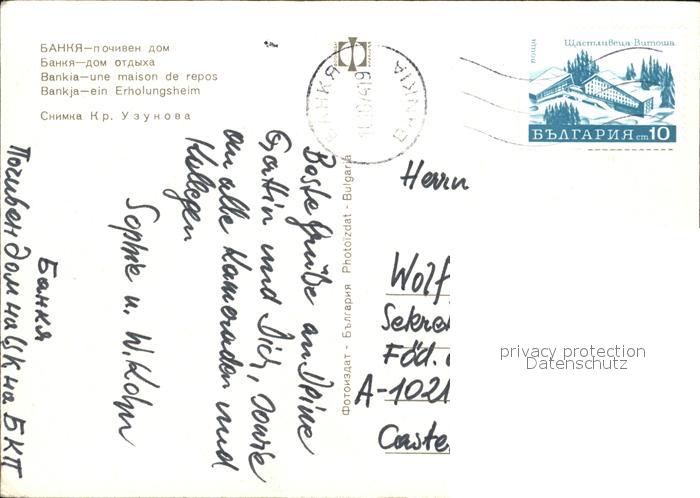 БАНКЯ—почивен дом
Банкя—дом отдыха
Bankia—une maison de repos
Bankja—ein Erholungsheim
Снимка Кр. Узунова
БАНКЯ
BANKIA
поща
Щастливеца-Витоша
БЪЛГАРИЯ ст 10
Фотоиздат - България Photoïzdat - Bulgaria
Beste Grüße an Deine
Gattin und Dich, sowie
an alle Kameraden und
Kollegen
Sophie u. W. Kohn
Банкя
Почивен дом на ЦК на БКП
Herrn
Wolf
Sekre
Föd.
A-1021
Caste
privacy protection
Datenschutz